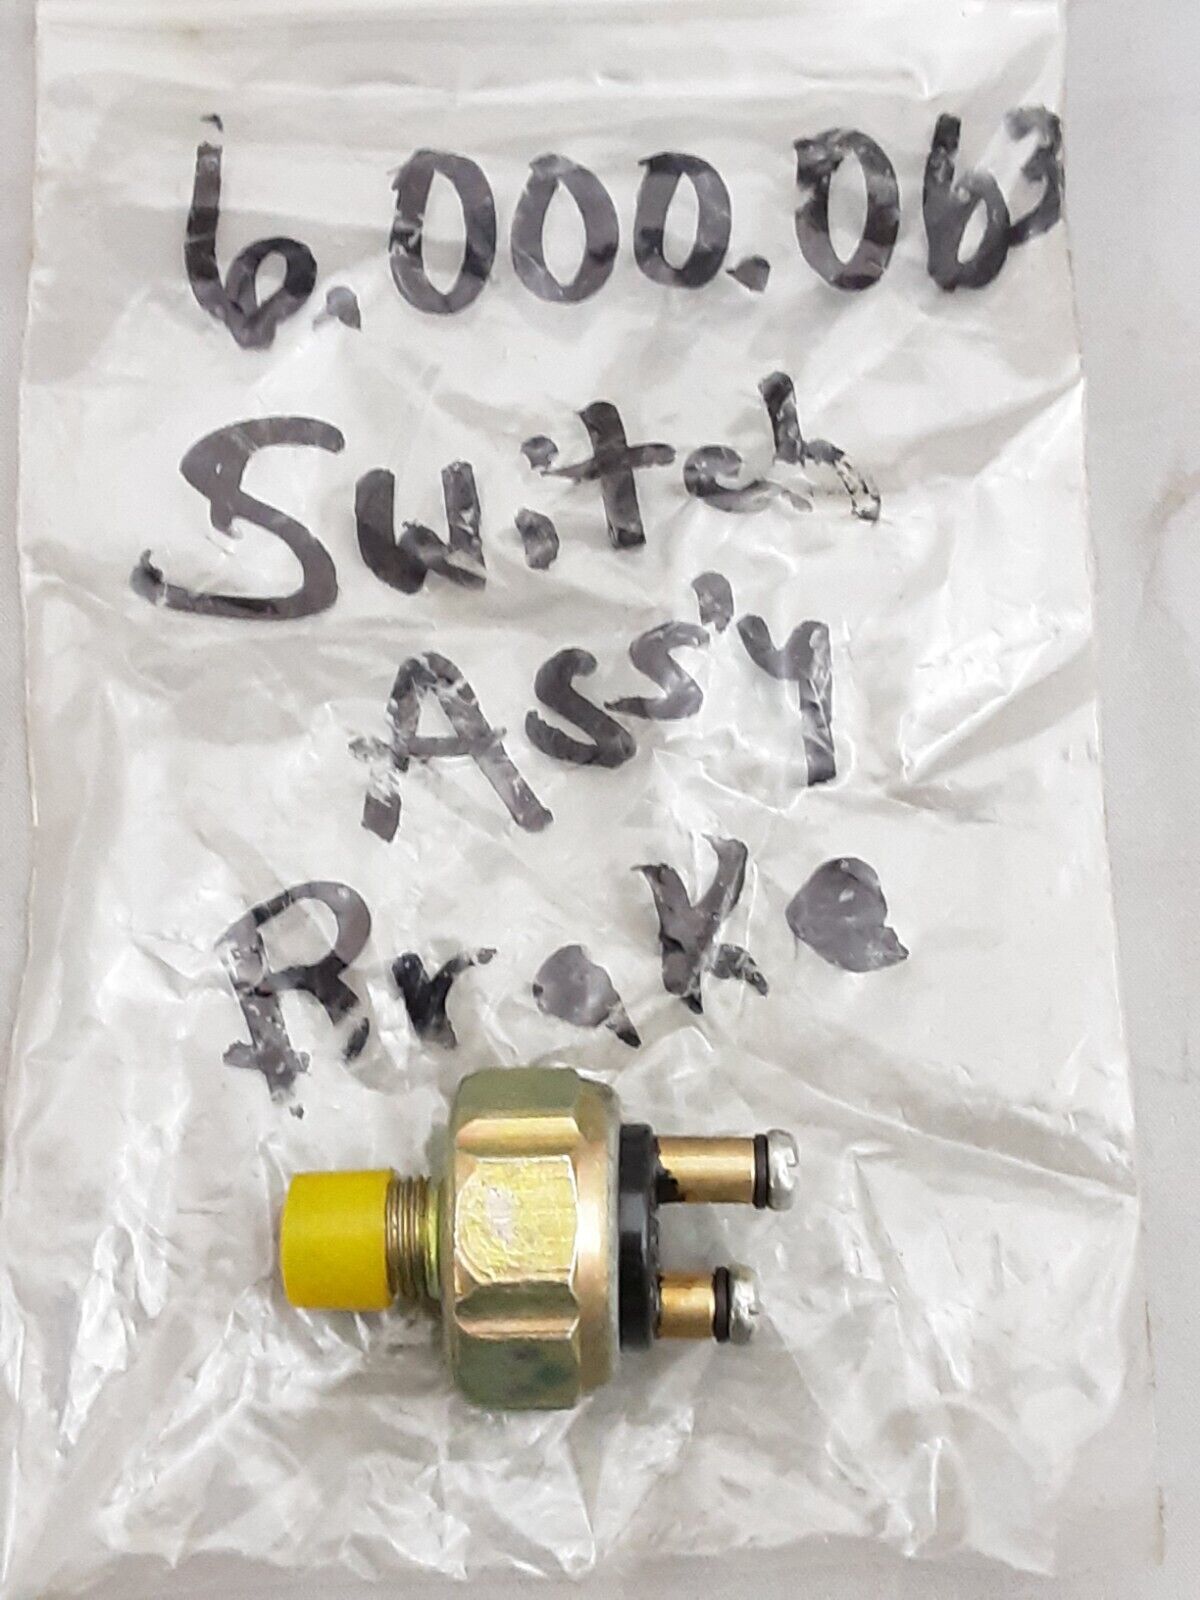 6.000.063
Switch
Ass'y
Brake